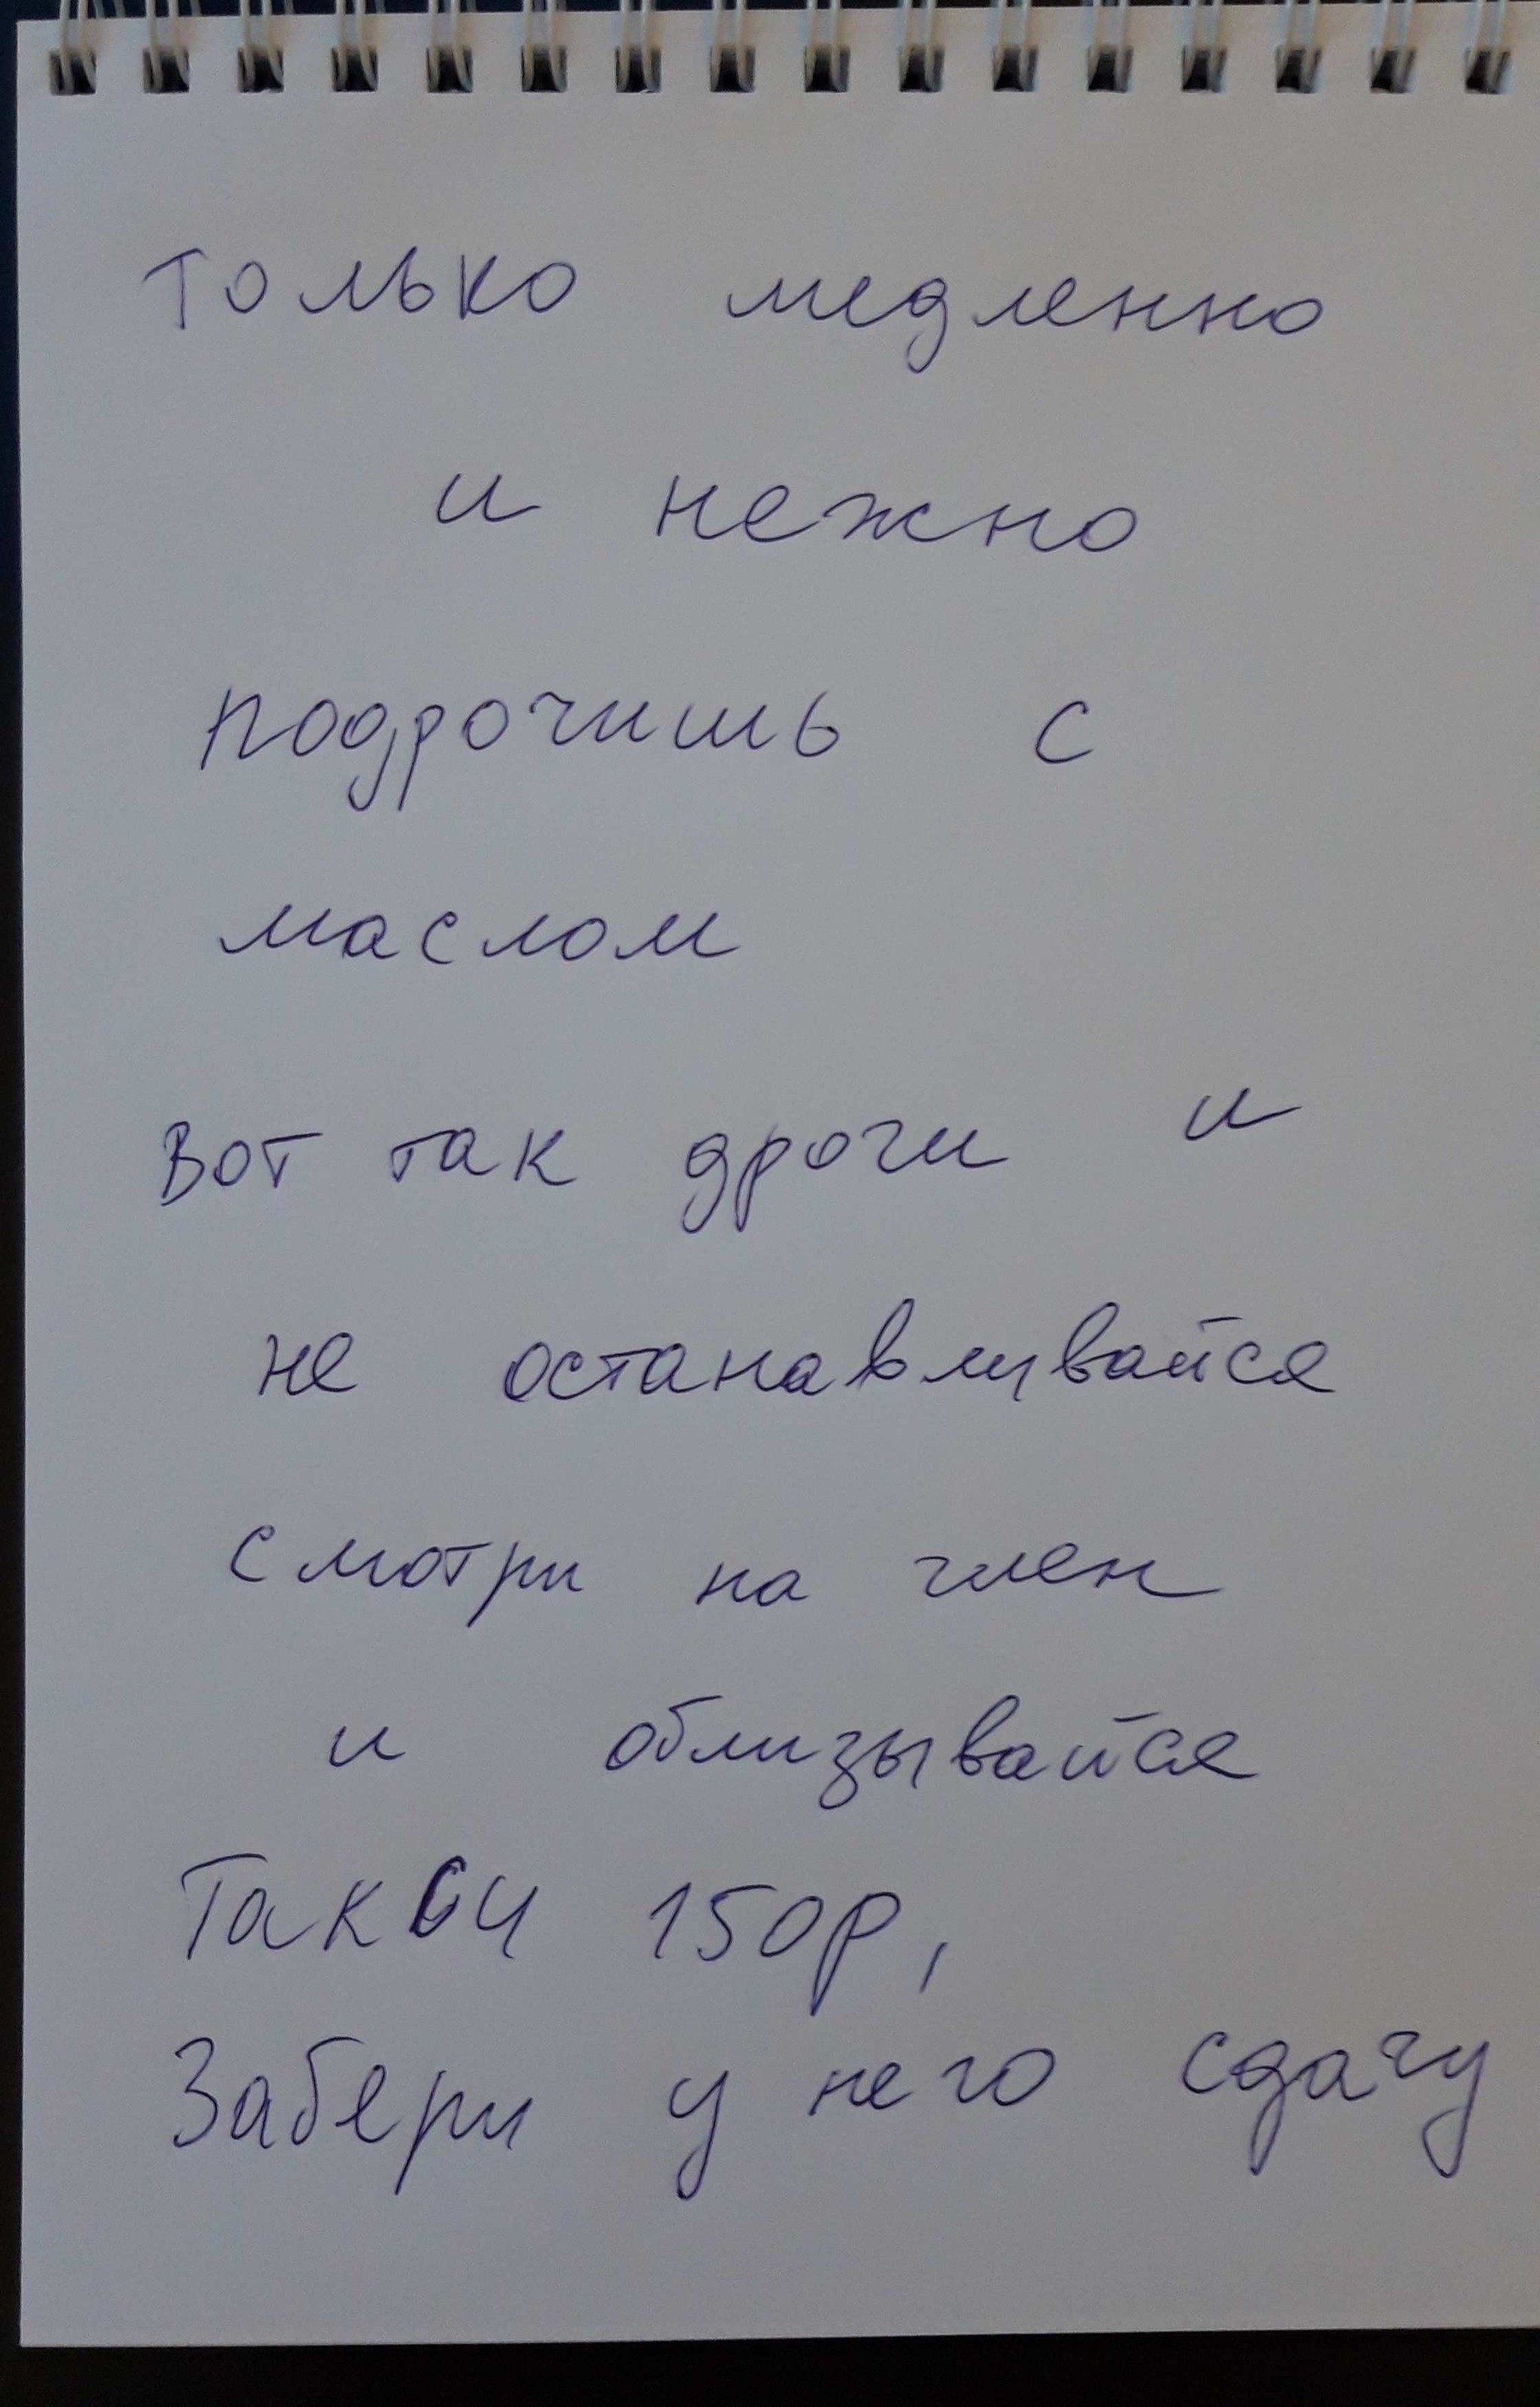 только медленно
и нежно
подрочишь с
маслом
Вот так дрочи и
не останавливайся
смотри на член
и облизывайся
Такси 150р,
Забери у него сдачу